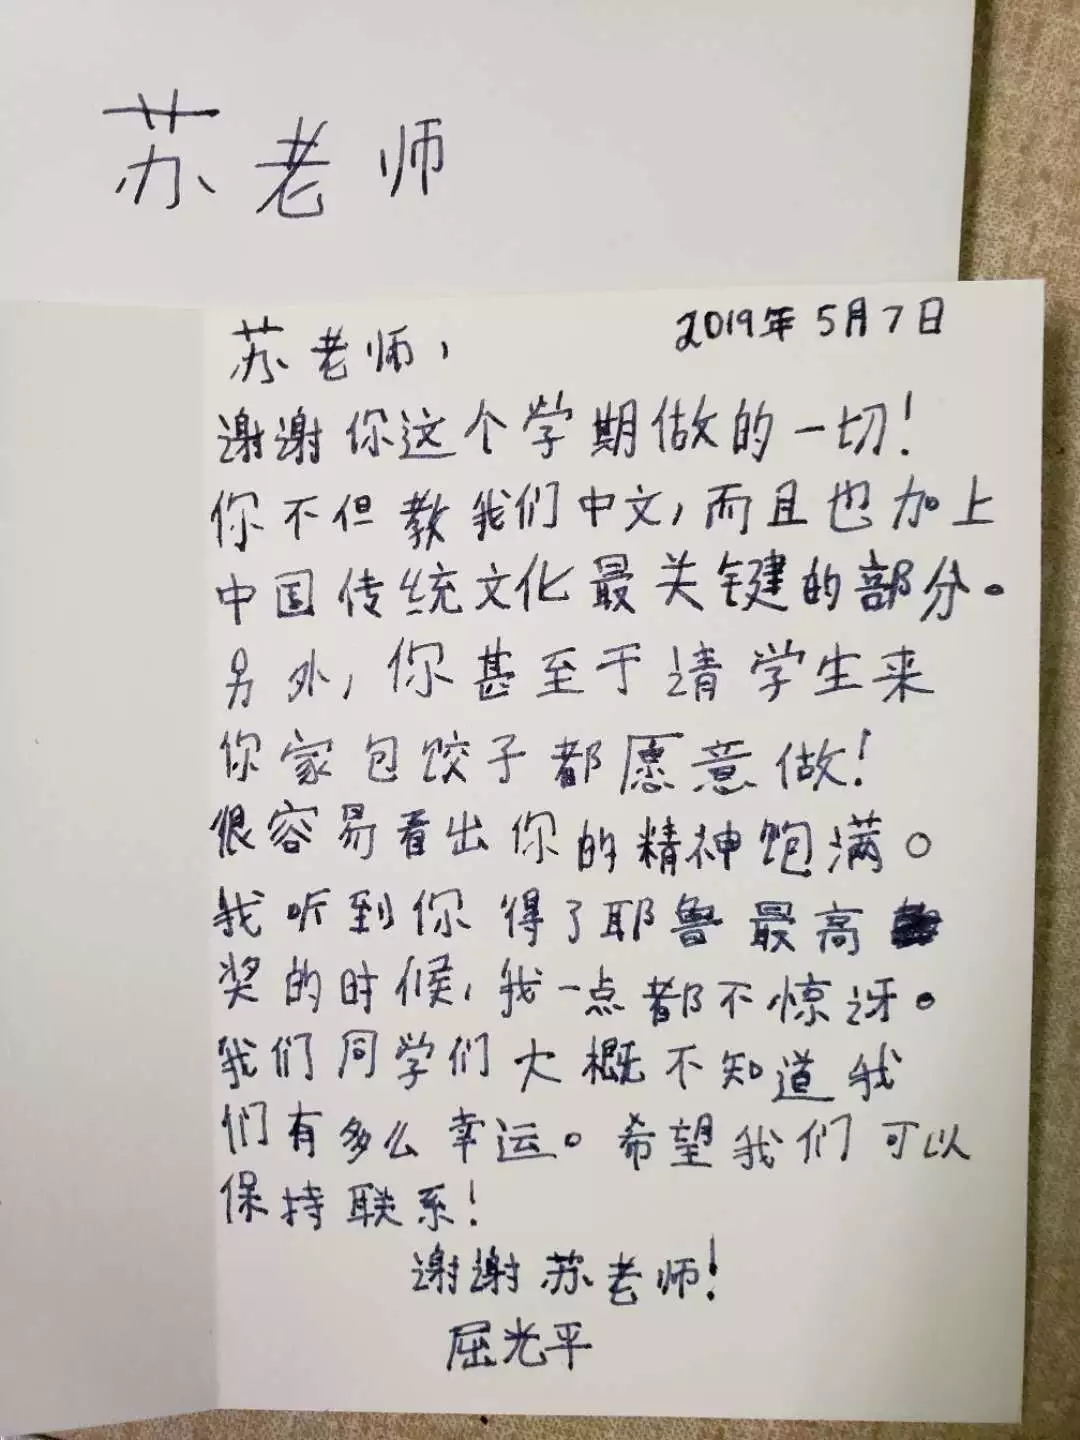 苏老师
2019年5月7日
苏老师，
谢谢你这个学期做的一切！
你不但教我们中文，而且也加上
中国传统文化最关键的部分。
另外，你甚至于请学生来
你家包饺子都愿意做！
很容易看出你的精神饱满。
我听到你得了耶鲁最高
奖的时候，我一点都不惊讶。
我们同学们大概不知道我
们有多么幸运。希望我们可以
保持联系！
谢谢苏老师！
屈光平